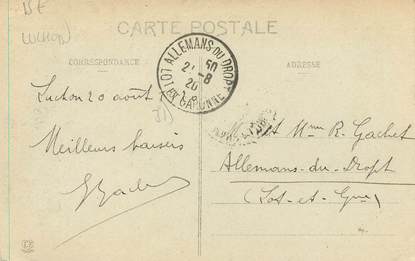 LUCHON
CARTE POSTALE
CORRESPONDANCE
ADRESSE
ALLEMANS-DU-DROPT
LOT ET GARONNE
20
Luchon 20 août
Meilleurs baisers
et Mme R. Gachet
Allemans-du-Dropt
(Lot-et-Gne)